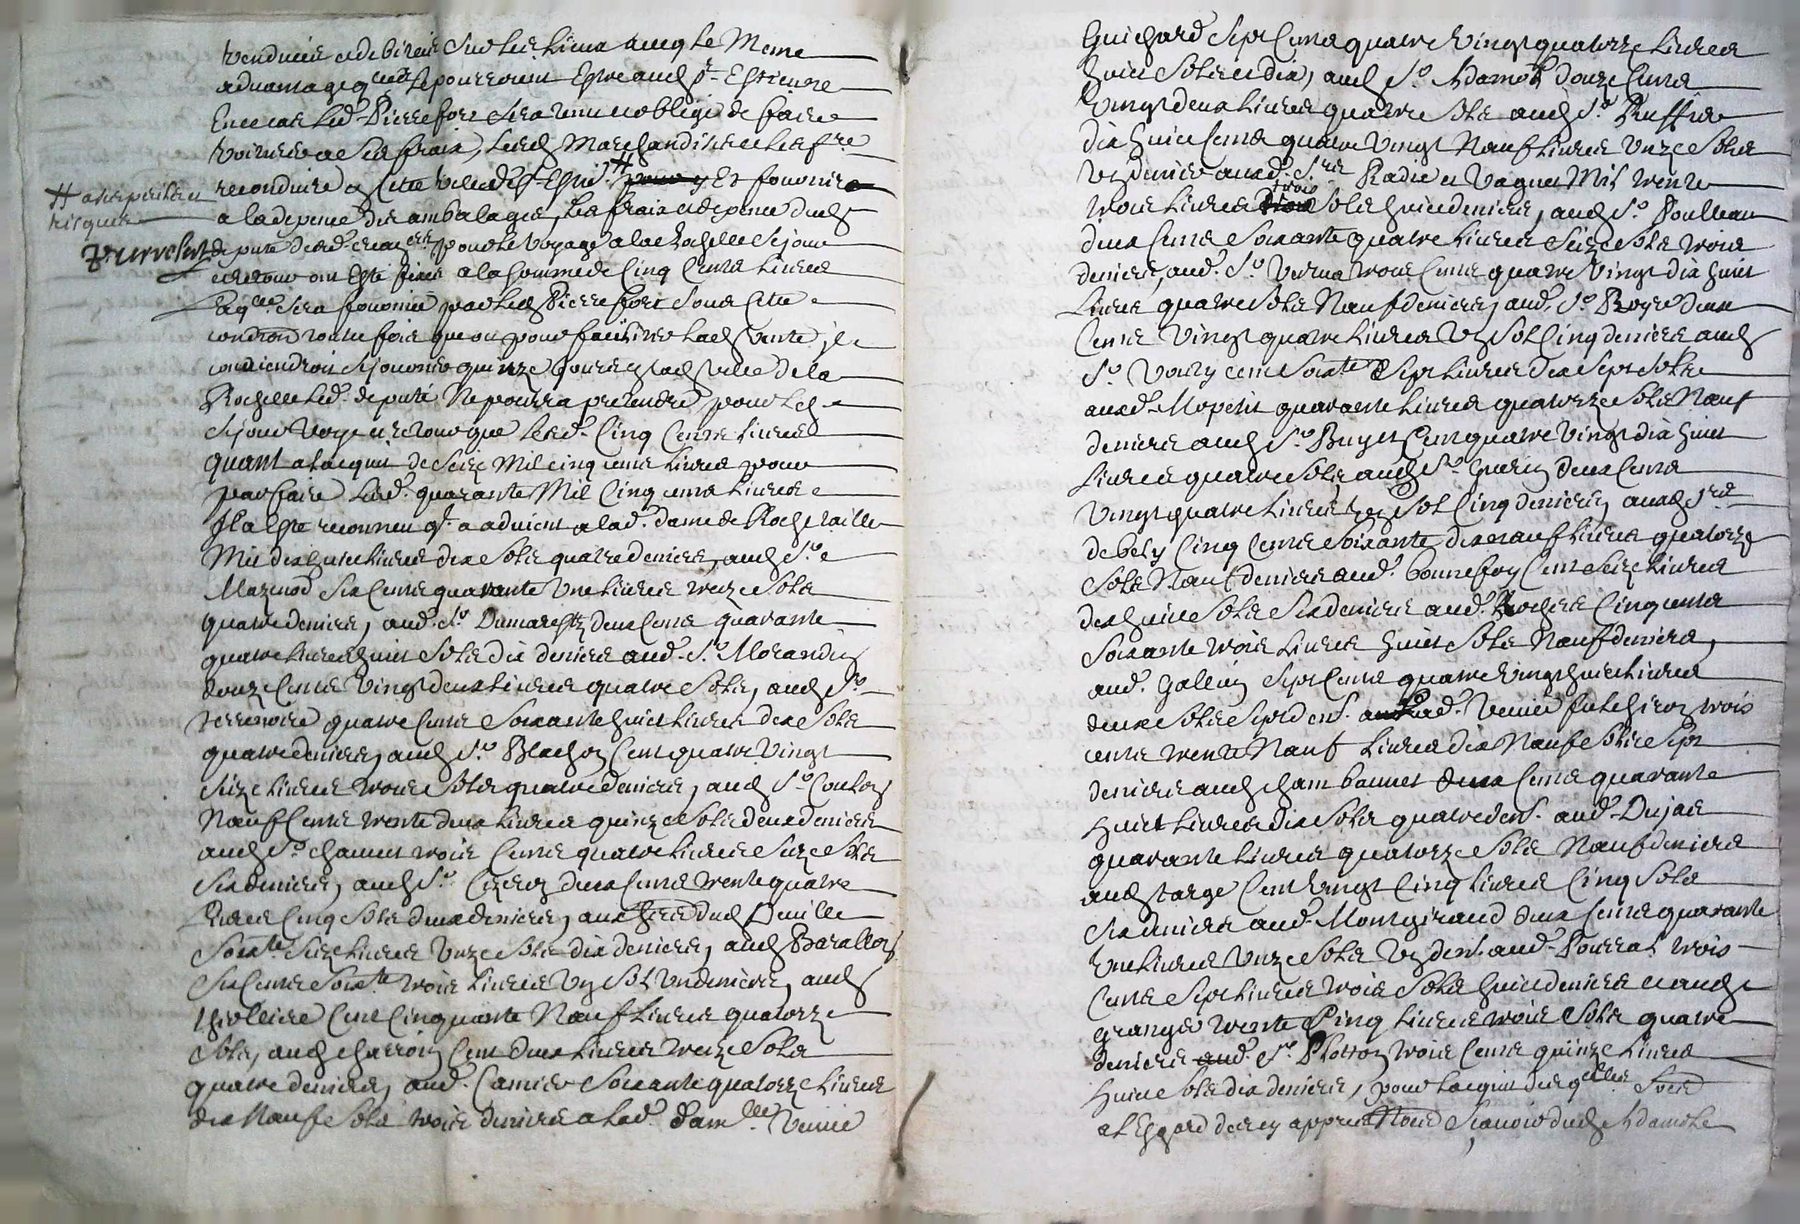 vendües et debitées sur les lieux avecq le mesme
advantage q les le pourroient Estre aud Sr Estienne
En ce cas led. Pierrefort sera tenu et obligé de faire
voiturer a ses fraix, lesd marchandises et les fre
reconduire a cette ville de St Esti. # pour y Et fournira
# a ses perils et
risques
a la depence des ambalages, les fraix et depence dud
deputé desd. creanciers pour le voyage a la Rochelle sejour
et retour ont Esté fixés a la somme de Cinq Cents livres
Laqlle sera fournie par led Pierrefort sous cette
condition toutefois que ou pour faciliter lad vente il
conviendroit sejourner quinze jours en lad ville de la
Rochelle led. deputé Ne pourra pretendre pour led
sejour voyage et retour que lesd. Cinq Cents livres
quant a lacquit de seize mil cinq cents livres pour
parfaire lesd. quarante Mil Cinq cents livres
Il a Esté reconneu qt a advient a lad. dame de Rochetaillée
Mil dix huit livres dix sols quatre deniers, aud Sr
Mazenod six Cents quarante une livres treize sols
quatre deniers, aud. Sr Dumarestz deux Cents quarante
quatre livres huit sols dix deniers aud. Sr Morandin
douze Cents vingt deux livres quatre sols, aud Sr
Terrenoire quatre Cents soixante huit livres dix sols
quatre deniers, aud Sr Blachon Cent quatre vingt
seize livres trois sols quatre deniers, aud Sr Couhon
Neuf Cents trente deux livres quinze sols deux deniers
aud Sr chauvet trois Cents quatre livres seize sols
six deniers, aud Sr Cizeron deux Cents trente quatre
Livres Cinq sols deux deniers, aux hers dud Deville
Soixte seize livres unze sols dix deniers, aud Baralhon
six Cents soixte trois livres un sol un deniers, aud
Thiolliere Cent Cinquante Neuf livres quatorze
sols, aud charroin Cent deux livres treize sols
quatre deniers, aud. Carrier soixante quatorze livres
dix Neuf sols trois deniers a lad. dam.lle veuve
Guichard sept Cents quatre vingt quatorze livres
huit sols et dix, aud Sr Adamolz douze Cents
vingt deux livres quatre sols aud Sr Ruffier
dix huit Cents quatre vingt Neuf livres unze sols
un denier auxd. Srs Radie et Vaguet Mil trente
trois livres trois sols huit deniers, aud Sr Poulleau
deux Cents soixante quatre livres seize sols trois
deniers, aud. Sr Verna trois Cents quatre vingt dix huit
Livres quatre sols Neuf deniers, aud. Sr Royre deux
Cents vingt quatre livres un sol Cinq deniers aud
Sr Voiry cent soixte sept livres dix sept sols
auxd. Mopetit quarante livres quatorze sols Neuf
deniers aud Sr Buyet Cent quatre vingt dix huit
livres quatre sols aud Sr Guerin deux Cents
vingt quatre livres un sol Cinq deniers, auxd Srs
debely Cinq Cents soixante dix neuf livres quatorze
sols Neuf deniers aud. bonnefoy Cent seize livres
dix huit sols six deniers aud. Rochers Cinq cents
soixante trois livres huit sols Neuf deniers,
aud. Gallein sept Cents quatre vingt huit livres
deux sols sept dens. a lad. veuve fulchiron trois
cents trente Neuf livres dix Neuf sols sept
deniers aud chambouvet deux Cents quarante
huit livres dix sols quatre dens. aud. Dujas
quarante livres quatorze sols Neuf deniers
aud farge Cent vingt Cinq livres Cinq sols
six deniers aud. Montgiraud deux Cents quarante
une livres unze sols un den. aud. Pourrat trois
Cents sept livres trois sols huit deniers et aud
granger trente Cinq livres trois sols quatre
deniers aud. Sr Plotton trois Cents quinze livres
huit sols dix deniers, pour lacquit desqelles sres
et Esgard de ce cy appres Nomd scavoir dud Adamolz